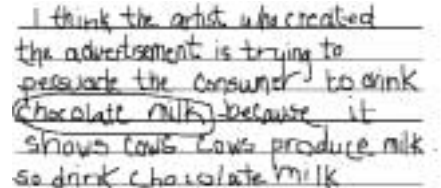 I think the artist who created
the advertisement is trying to
persuade the consumer to drink
chocolate milk because it
shows cows cows produce milk
so drink chocolate milk